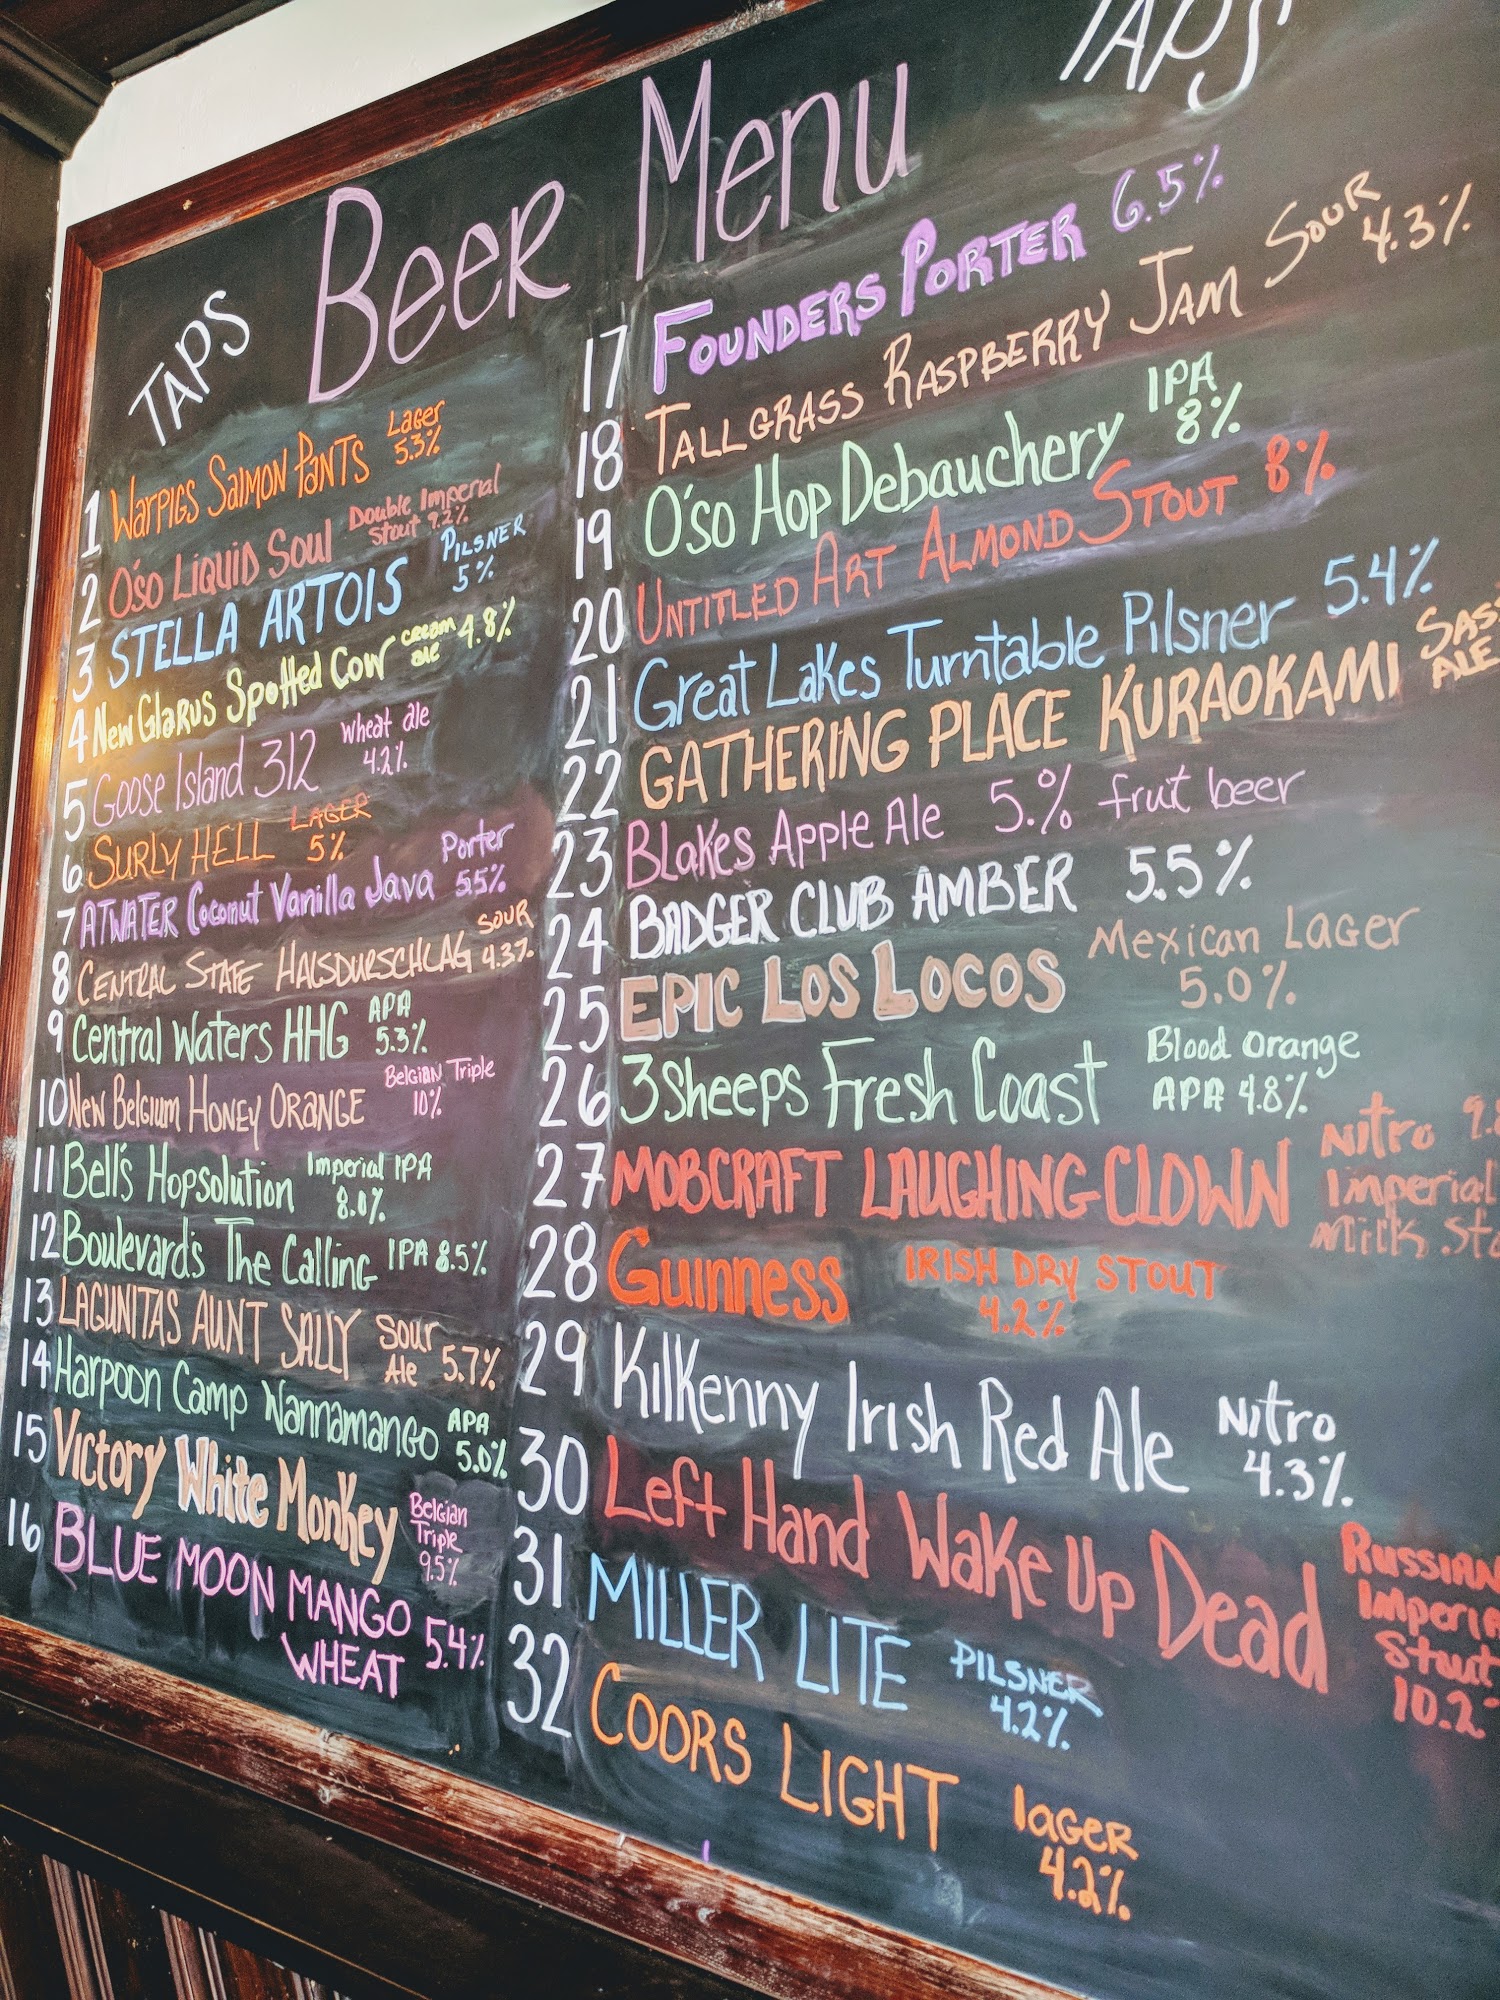 Beer Menu
TAPS
1 Warpigs Salmon Pants Lager 5.3%
2 O'so Liquid Soul Double Imperial Stout 9.2%
3 STELLA ARTOIS PILSNER 5%
4 New Glarus Spotted Cow cream ale 4.8%
5 Goose Island 312 wheat ale 4.2%
6 SURLY HELL LAGER 5%
7 ATWATER Coconut Vanilla Java Porter 5.5%
8 CENTRAL STATE HALSDURSCHLAG SOUR 4.3%
9 Central Waters HHG APA 5.3%
10 New Belgium HONEY ORANGE Belgian Triple 10%
11 Bell's Hopsolution Imperial IPA 8.0%
12 Boulevard's The Calling IPA 8.5%
13 LAGUNITAS AUNT SALLY Sour Ale 5.7%
14 Harpoon Camp Wannamango APA 5.0%
15 Victory White Monkey Belgian Triple 9.5%
16 BLUE MOON MANGO WHEAT 5.4%
TAPS
17 FOUNDERS PORTER 6.5%
18 TALLGRASS RASPBERRY JAM SOUR 4.3%
19 O'so Hop Debauchery IPA 8%
20 UNTITLED ART ALMOND STOUT 8%
21 Great Lakes Turntable Pilsner 5.4%
22 GATHERING PLACE KURAOKAMI ALE
23 Blakes Apple Ale 5.% fruit beer
24 BADGER CLUB AMBER 5.5%
25 EPIC LOS LOCOS Mexican Lager 5.0%
26 3Sheeps Fresh Coast Blood Orange APA 4.8%
27 MOBCRAFT LAUGHING CLOWN Nitro Imperial Milk
28 Guinness IRISH DRY STOUT 4.2%
29 Kilkenny Irish Red Ale Nitro 4.3%
30 Left Hand Wake Up Dead Russian Imperial Stout 10.2
31 MILLER LITE PILSNER 4.2%
32 COORS LIGHT lager 4.2%